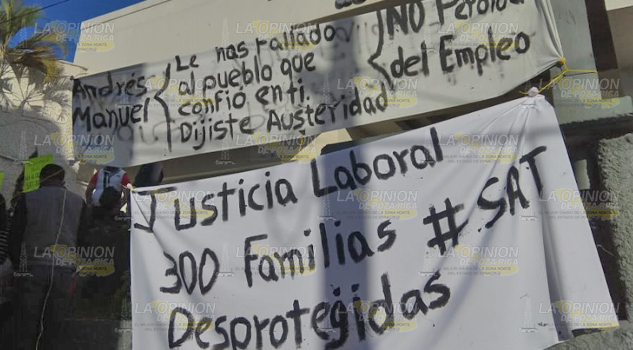 Andrés
Manuel
Le has fallado
al pueblo que
confió en ti.
Dijiste Austeridad
NO Perdida
del Empleo
Justicia Laboral
300 Familias #SAT
Desprotegidas
LA OPINION
DE POZA RICA